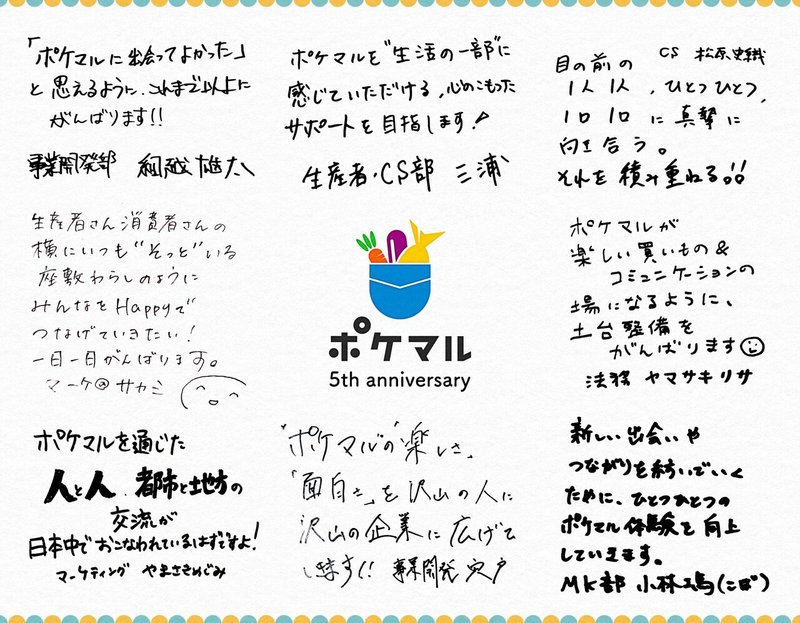 「ポケマルに出会ってよかった」
と思えるように、これまで以上に
がんばります!!
事業開発部
ポケマルを"生活の一部"に
感じていただける、心のこもった
サポートを目指します!
生産者・CS部 三浦
CS 松原
目の前の
1人1人、ひとつひとつ、
1日1日に真摯に
向き合う。
それを積み重ねる!!
生産者さん消費者さんの
横にいつも"そっと"いる
座敷わらしのように
みんなをHappyで
つなげていきたい!
一日一日がんばります。
マーケ@サカミ
ポケマル
5th anniversary
ポケマルが
楽しい買いもの&
コミュニケーションの
場になるように、
土台整備を
がんばります
法務 ヤマサキリサ
ポケマルを通じた
人と人、都市と地方の
交流が
日本中でおこなわれているはずですよ!
マーケティング やまさきめぐみ
"ポケマル"の「楽しさ」
「面白さ」を沢山の人に
沢山の企業に広げて
します!! 事業開発 宍戸
新しい出会いや
つながりを紡いでいく
ために、ひとつひとつの
ポケマル体験を向上
していきます。
MK部 小林 (こば)